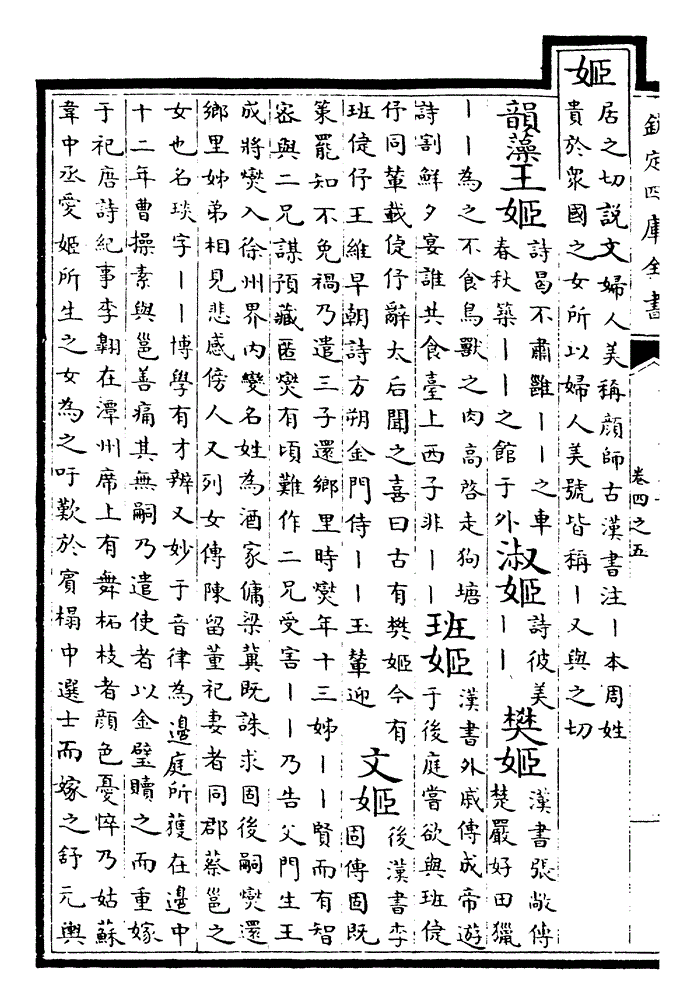 欽定四庫全書
卷四之五
姬
居之切說文婦人美稱顔師古漢書注丨本周姓
貴於衆國之女所以婦人美號皆稱丨又與之切
韻藻王姬
詩曷不肅雝丨丨之車
春秋築丨丨之館于外
淑姬
詩彼美
丨丨
樊姬
漢書張敞傳
楚嚴好田獵
丨丨為之不食鳥獸之肉高啓走狗塘
詩割鮮夕宴誰共食臺上西子非丨丨
班姬
漢書外戚傳成帝遊
于後庭嘗欲與班倢
伃同輦載倢伃辭太后聞之喜曰古有樊姬今有
班倢伃王維早朝詩方朔金門侍丨丨玉輦迎
文姬
後漢書李
固傳固既
策罷知不免禍乃遣三子還鄉里時燮年十三姊丨丨賢而有智
宻與二兄謀預藏匿燮有頃難作二兄受害丨丨乃告父門生王
成將燮入徐州界內變名姓為酒家傭梁冀既誅求固後嗣燮還
鄉里姊弟相見悲感傍人又列女傳陳留董祀妻者同郡蔡邕之
女也名琰字丨丨博學有才辨又妙于音律為邊庭所獲在邊中
十二年曹操素與邕善痛其無嗣乃遣使者以金璧贖之而重嫁
于祀唐詩紀事李翺在潭州席上有舞柘枝者顔色憂悴乃姑蘇
韋中丞愛姬所生之女為之吁歎於賓榻中選士而嫁之舒元輿